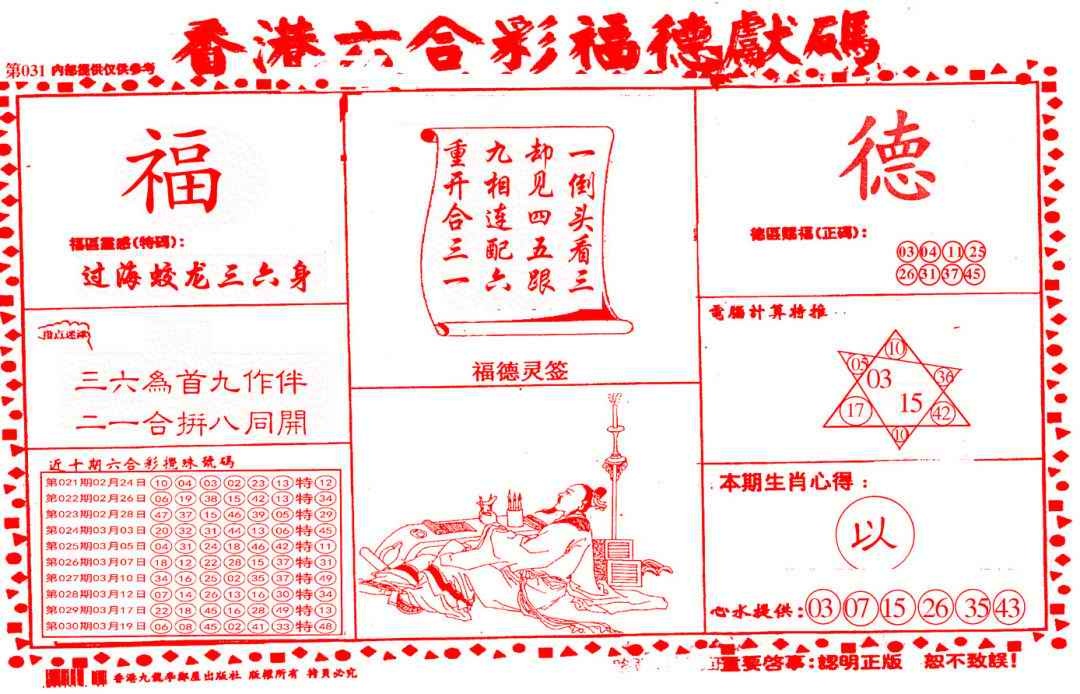 香港六合彩福德獻碼
第031 内部提供仅供参考
福
福區靈感(特碼):
过海蛟龙三六身
指点迷津
三六為首九作伴
二一合拚八同開
近十期六合彩攪珠號碼
第021期02月24日 10 04 03 02 23 13 特 12
第022期02月26日 06 19 38 15 42 13 特 34
第023期02月28日 47 37 15 46 39 05 特 29
第024期03月03日 20 32 31 44 13 06 特 45
第025期03月05日 04 31 24 18 46 42 特 11
第026期03月07日 18 12 22 28 15 37 特 31
第027期03月10日 34 16 25 02 35 37 特 49
第028期03月12日 07 14 26 13 16 30 特 34
第029期03月17日 22 18 45 16 28 49 特 13
第030期03月19日 06 08 45 02 41 33 特 48
一倒头看三
却见四五跟
九相连配六
重开合三一
福德灵签
德
德區賜福(正碼):
03 04 11 25
26 31 37 45
電腦計算特推
10
05 36
03
15
17 42
10
本期生肖心得:
以
心水提供: 03 07 15 26 35 43
香港九龍學鄰屋出版社 版權所有 特員必究
重要啓事:認明正版 恕不致誤!